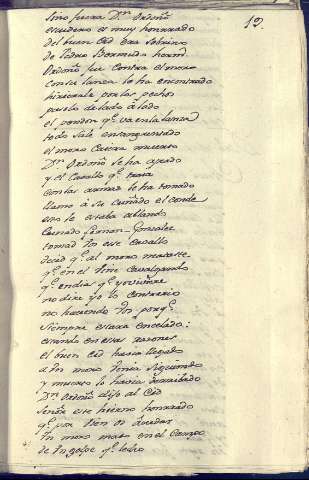 12
Sino fuera Dn. Ordoño
escudero es muy honrrado
del buen Cid era sobrino
de Pedro Bermudo herm.
Ordoño fue contra el moro
con su lanza le ha encontrado
hirierale por los pechos
pasolo de lado à lado
el pendon q.e va en la lanza
todo sale ensangrentado
el moro cayera muerto
Dn. Ordoño se ha apeado
y el Cavallo q.e traia
con las armas le ha tomado
llamo à su cuñado el conde
que le estaba
Cuñado Fernan Gonzalez
tomad Vn ese Cavallo
decid q.e al moro mataste
q.e en el vino cavalgando
q.e en dias q.e yo viviere
no dire yo lo contrario
no haciendo Vn porq.e
siempre estara encelado:
estando en estas razones
el buen Cid havia llegado
à Un moro venia siguiendo
y muerto lo havia derribado
Dn. Ordoño dijo al Cid
Señor ese hierno honrrado
q.e por bien os ayudar
Un moro mato en el Campo
de Un golpe q.e le dio